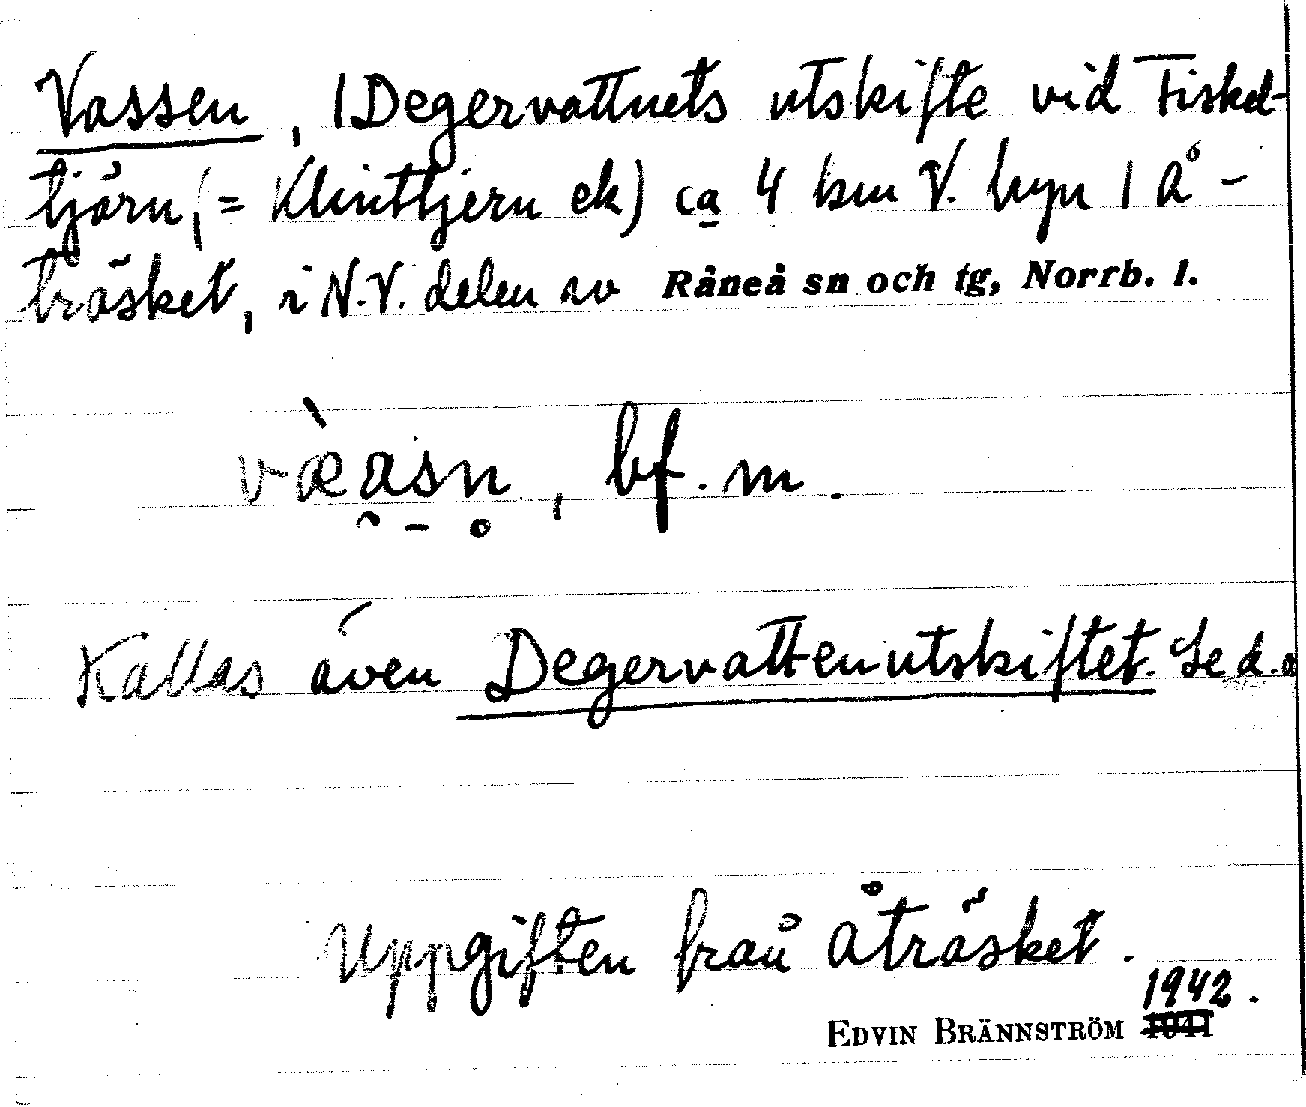 Vassen, i Degervattnets utskifte vid Fiskel-
tjärn, (= Klinttjern ek) ca 4 km V. byn i Å-
träsket, i N.V. delen av Råneå sn och tg, Norrb. l.
væ̀ɑ̯s̠n̥, bf. m.
Kallas även Degervattenutskiftet. Se d.o
Uppgiften från Åträsket.
1942.
EDVIN BRÄNNSTRÖM 1941